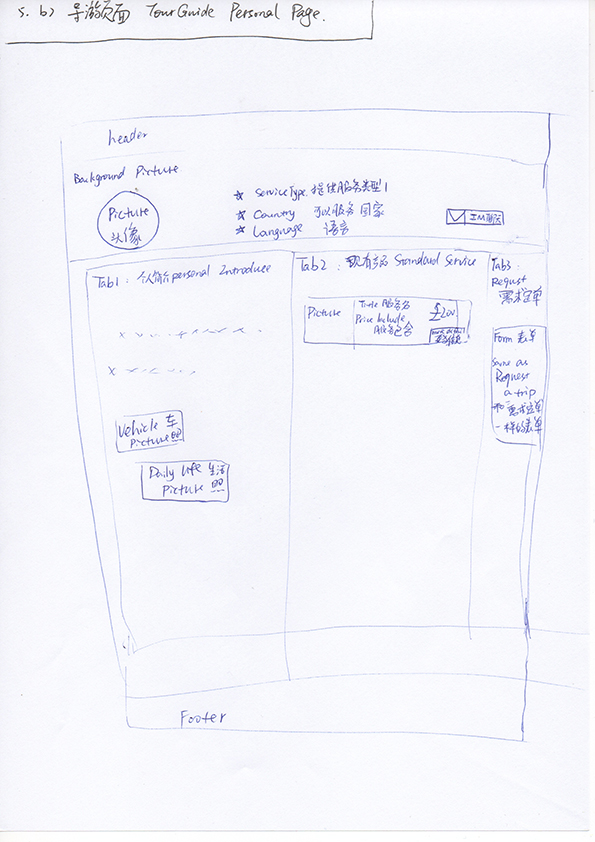 5. b) 导游页面 TourGuide Personal Page.
header
Background Picture
Picture
头像
☆ ServiceType 提供服务类型
☆ Country 可以服务国家
☆ Language 语言
IM
Tab1: 个人简介 personal Introduce
Vehicle 车
Picture 照
Daily Life 生活
Picture 照
Tab2: 现有产品 Standard Service
Picture
Title 服务名
Price Include
服务包含
$200
Tab3:
Requst
需求定单
Form 表单
Same as
Request
a trip
和需求定单
一样的表单
Footer